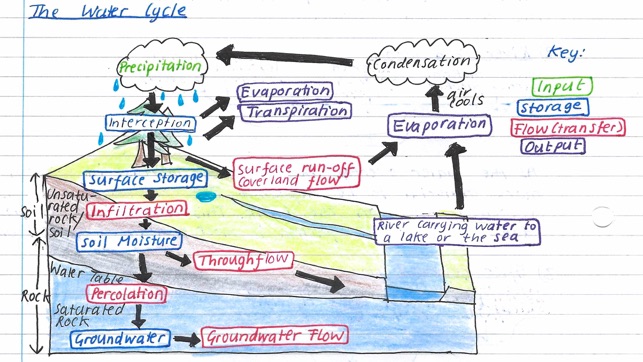 The Water Cycle
Precipitation
Condensation
Key:
Input
Storage
Flow (transfer)
Output
Evaporation
Transpiration
Interception
air
cools
Evaporation
Surface run-off
(overland flow
Surface Storage
Soil
Unsatu-
rated
rock/
soil
Infiltration
River carrying water to
a lake or the sea
Soil Moisture
Throughflow
Rock
Water Table
Percolation
Saturated
Rock
Groundwater
Groundwater Flow